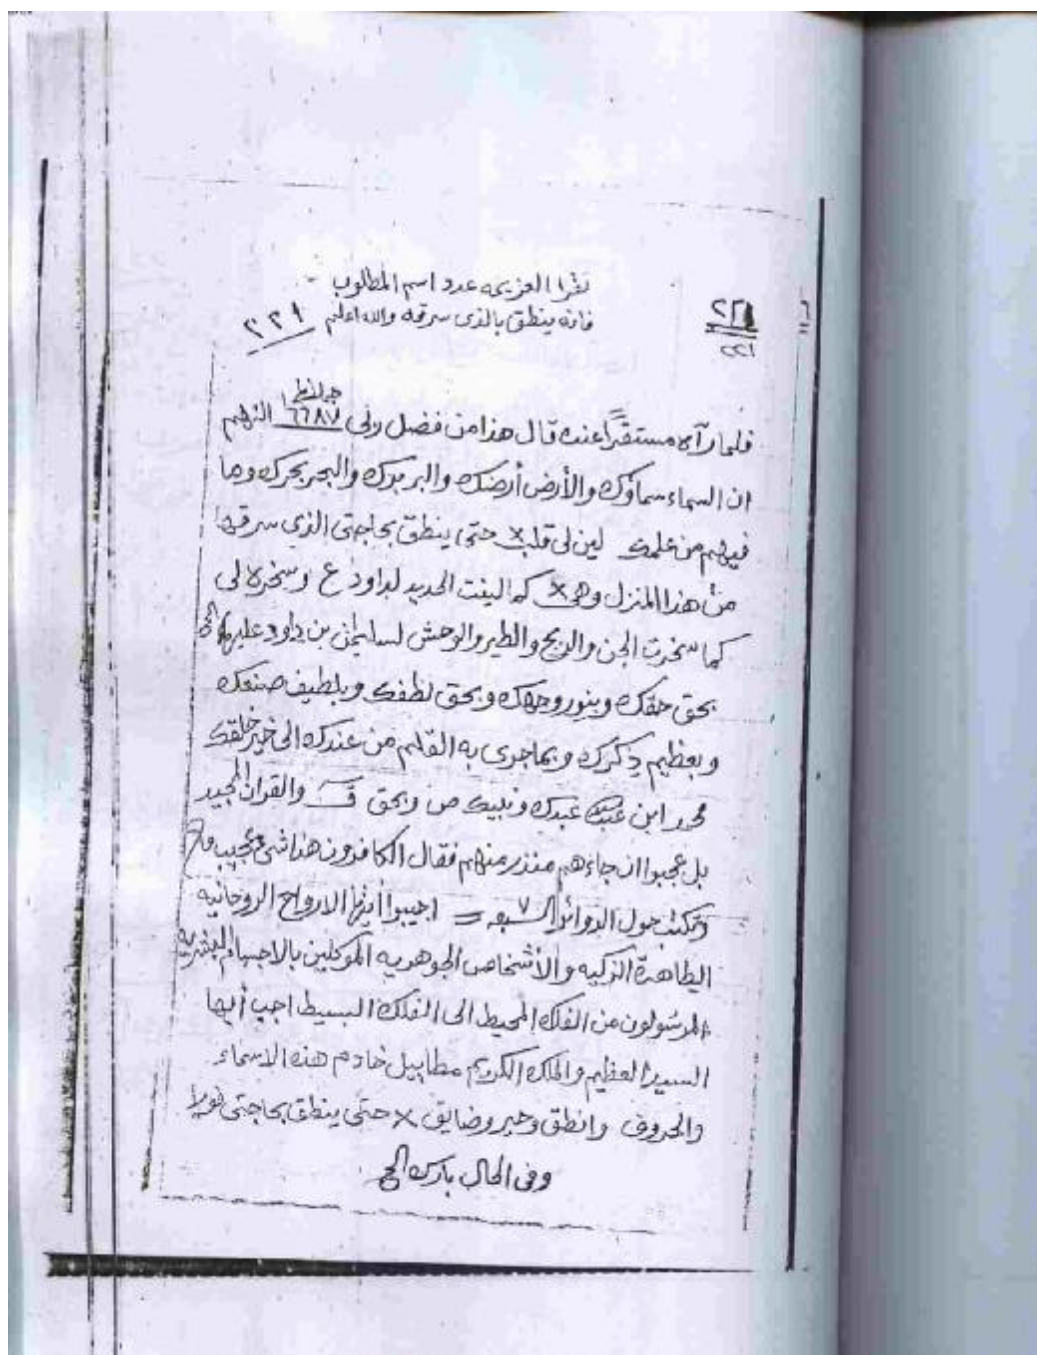 تقرا العزيمه عدد اسم المطلوب
فانه ينطق بالذى سرقه والله اعلم ٢٢١
٢٢١
٢٢١
فلما رآه مستقرًا عنده قال هذا من فضل ربى ٦٦٨٧ اللهم
ان السماء سماؤك والأرض أرضك والبر برك والبحر بحرك وما
فيهم من علمك لين لى قلب × حتى ينطق بحاجتى الذى سرقها
من هذا المنزل وهى × كما الينت الحديد لداود ع وسخره لى
كما سخرت الجن والريح والطير والوحش لسليمن بن داود عليهما
بحق حقك وبنور وجهك وبحق لطفك وبلطيف صنعك
وبعظيم ذكرك وبما جرى به القلم من عندك الى خير خلقك
محمد ابن عبدك ونبيك ص وبحق ق والقران المجيد
بل عجبوا ان جاءهم منذر منهم فقال الكافرون هذا شىء عجيب
وتكتب حول الدوائر السبعه ٧ = اجيبوا أيتها الارواح الروحانيه
الطاهرة الزكيه والأشخاص الجوهريه الموكلين بالاجسام البشريه
المرسولون من الفلك المحيط الى الفلك البسيط اجب أيها
السيد العظيم والملك الكريم مطاييل خادم هذه الاسماء
والحروف وانطق وخبر وضايق × حتى ينطق بحاجتى فورا
وفى الحال بارك الخ